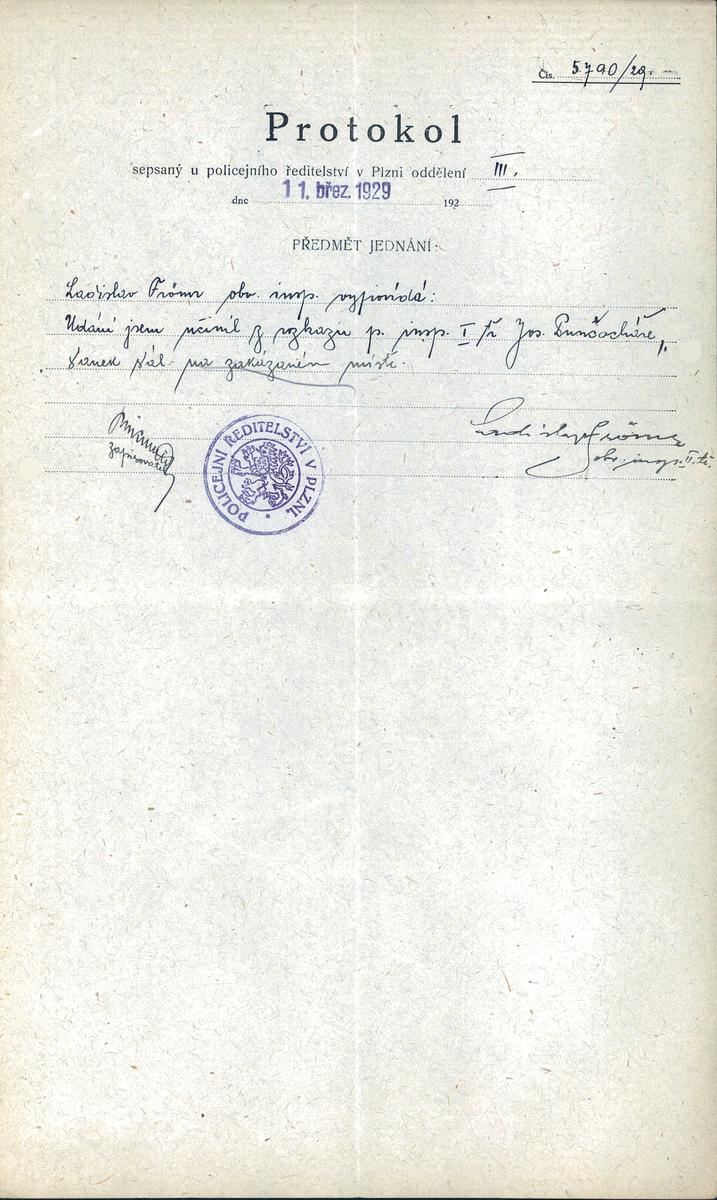 Čís. 5790/29.
Protokol
sepsaný u policejního ředitelství v Plzni oddělení III.
dne 11. břez. 1929 192
PŘEDMĚT JEDNÁNÍ:
Ladislav Fröme obv. insp. vypovídá:
Udání jsem učinil z rozkazu p. insp. I tř Jos. Punčocháře,
Vanek stál na zakázaném místě.
Ladislav Fröme
zapisovatel
obv. insp. II. tř.
POLICEJNÍ ŘEDITELSTVÍ V PLZNI